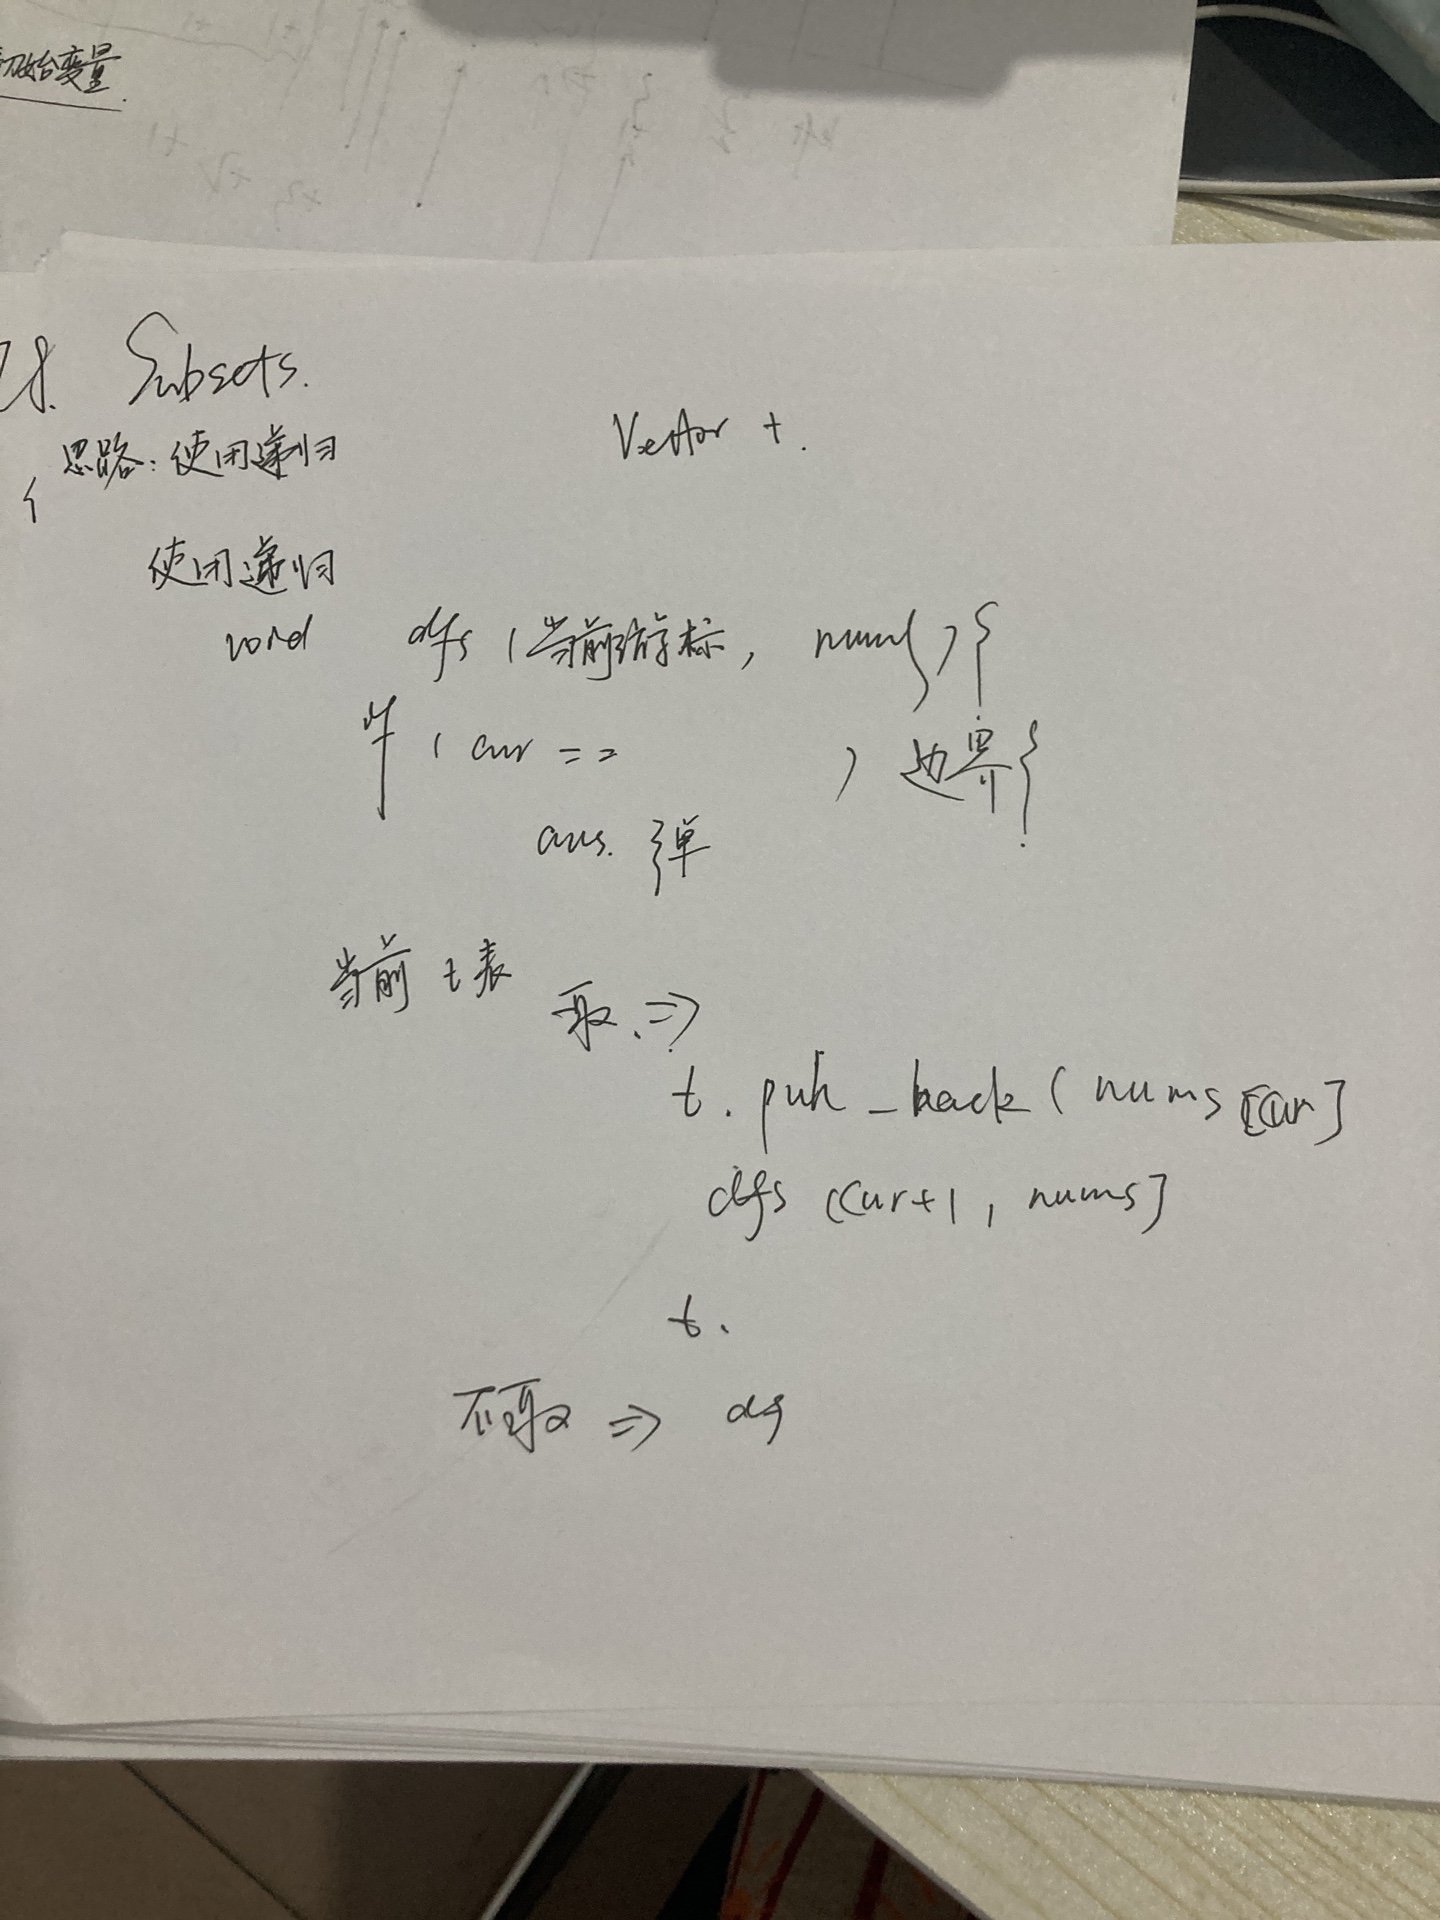 初始变量
78. Subsets.
思路：使用递归
Vector t.
使用递归
void dfs (当前游标, nums) {
if (cur == ) 边界{
ans. 弹
当前 t表
取. =>
t. puh_back ( nums [cur]
dfs (cur+1, nums]
t.
不取 => df